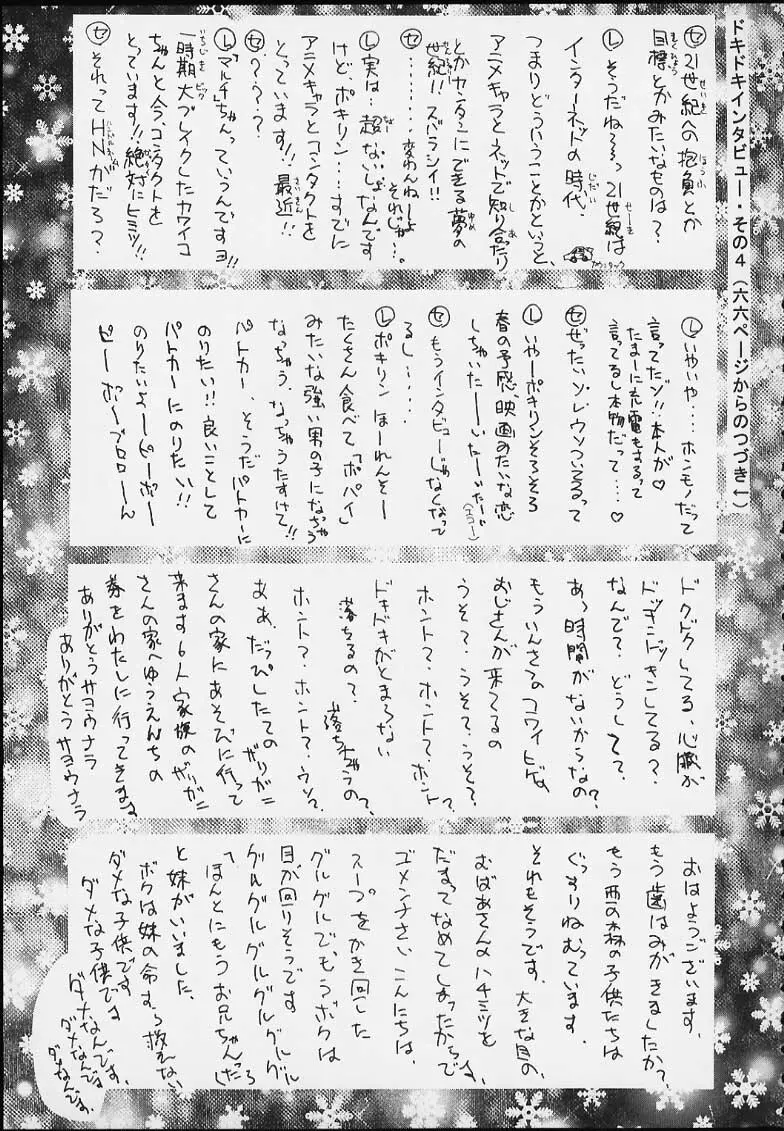 ドキドキインタビュー・その4（六六ページからのつづき←）
セ 21世紀への抱負とか
目標とかみたいなものは？
L そうだね〜〜っ 21世紀は
インターネットの時代、
つまりどういうことかというと、
アニメキャラとネットで知り合ったり
とかカンタンにできる夢の
世紀!! ズバラシイ!!
セ ‥‥‥‥変わんねーよ
それじゃ‥‥。
L 実は‥超ないしょなんです
けど、ポキリン‥‥すでに
アニメキャラとコンタクトを
とっています!!最近!!
セ ？？？
L「マルチ」ちゃんっていうんですヨ!!
一時期大ブレイクしたカワイコ
ちゃんと今、コンタクトを
とっています!!絶対にヒミツ!!
セ それってHNがだろ？
L いやいや‥‥ホンモノだって
言ってたゾ!!本人が♡
たまーに充電もするって
言ってるし本物だって‥‥♡
セ ぜったいソレウソついてるって
L いやーポキリンそろそろ
春の予感、映画みたいな恋
しちゃいたーいたーいたーい
（エコー）
セ もうインタビューじゃなくなって
るし‥‥‥
L ポキリン ほーれんそー
たくさん食べて「ポパイ」
みたいな強い男の子になっちゃう
なっちゃう、なっちゃうたすけて!!
パトカー、そうだパトカーに
のりたい!!良いことして
パトカーにのりたい!!
のりたいよーピーポー
ピーポーブロローん
ドクドクしてる、心臓が
ドッキンドッキンしてる？
なんで？どうして？
あっ時間がないからなの？
もういんさつのコワイヒゲ
おじさんが来てるの
うそ？うそ？うそ？
ホント？ホント？ホント？
ドキドキがとまらない
落ちるの？落ちちゃうの？
ホント？ホント？ウソ？
ああ、だっぴしたての ザリガニ
さんの家にあそびに行って
来ます6人家族のザリガニ
さんの家へゆうえんちの
券をわたしに行ってきます
ありがとうサヨウナラ
ありがとうサヨウナラ
おはようございます、
もう歯はみがきましたか？
もう西の森の子供たちは
ぐっすりねむっています、
それもそうです、大きな目の、
おばあさんのハチミツを
だまってなめてしまったからです、
ゴメンナさい、こんにちは、
スープをかき回した
グルグルでもうボクは
目が回りそうです
グルグルグルグルグルグル
「ほんとにもうお兄ちゃんったら」
と妹がいいました、
ボクは妹の命すら救えない
ダメな子供です
ダメな子供です
ダメなんです、
ダメなんです、
ダメなんです、